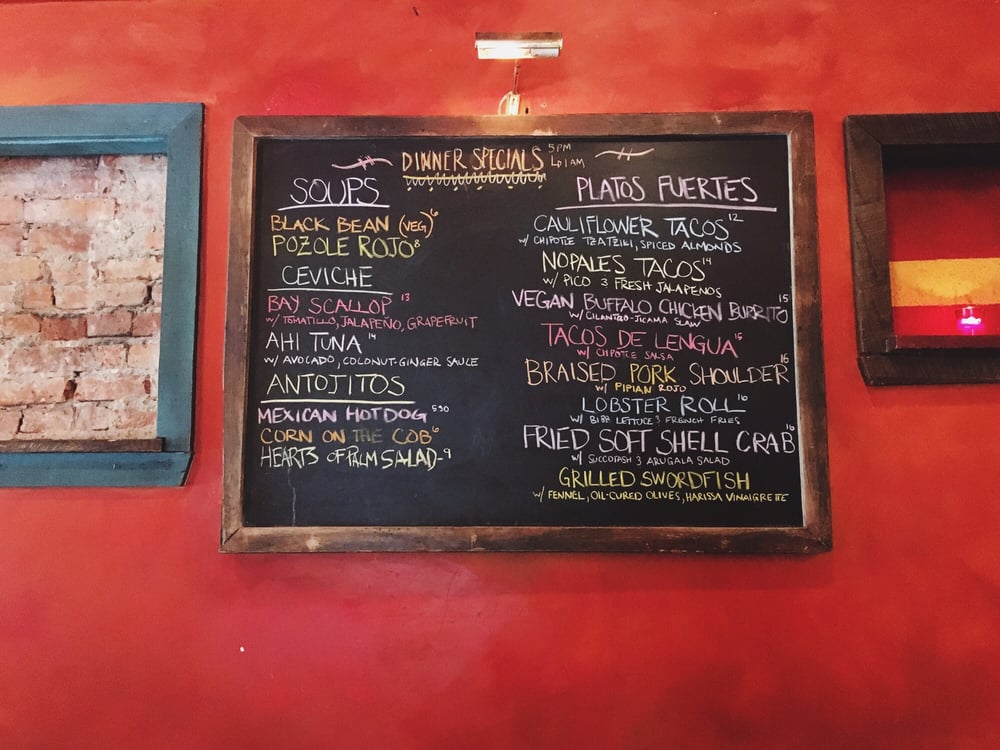 DINNER SPECIALS 5PM
SOUPS
BLACK BEAN (VEG) 6
POZOLE ROJO 8
CEVICHE
BAY SCALLOP 13
w/ TOMATILLO, JALAPEÑO, GRAPEFRUIT
AHI TUNA 14
w/ AVOCADO, COCONUT-GINGER SAUCE
ANTOJITOS
MEXICAN HOT DOG 550
CORN ON THE COB 6
HEARTS OF PALM SALAD-9
PLATOS FUERTES
CAULIFLOWER TACOS 12
w/ CHIPOTLE TZATZIKI, SPICED ALMONDS
NOPALES TACOS 14
w/ PICO & FRESH JALAPENOS
VEGAN BUFFALO CHICKEN BURRITO 15
w/ CILANTRO-JICAMA SLAW
TACOS DE LENGUA 15
w/ CHIPOTLE SALSA
BRAISED PORK SHOULDER 16
w/ PIPIAN ROJO
LOBSTER ROLL 16
w/ BIBB LETTUCE & FRENCH FRIES
FRIED SOFT SHELL CRAB 16
w/ SUCCOTASH & ARUGALA SALAD
GRILLED SWORDFISH
w/ FENNEL, OIL-CURED OLIVES, HARISSA VINAIGRETTE